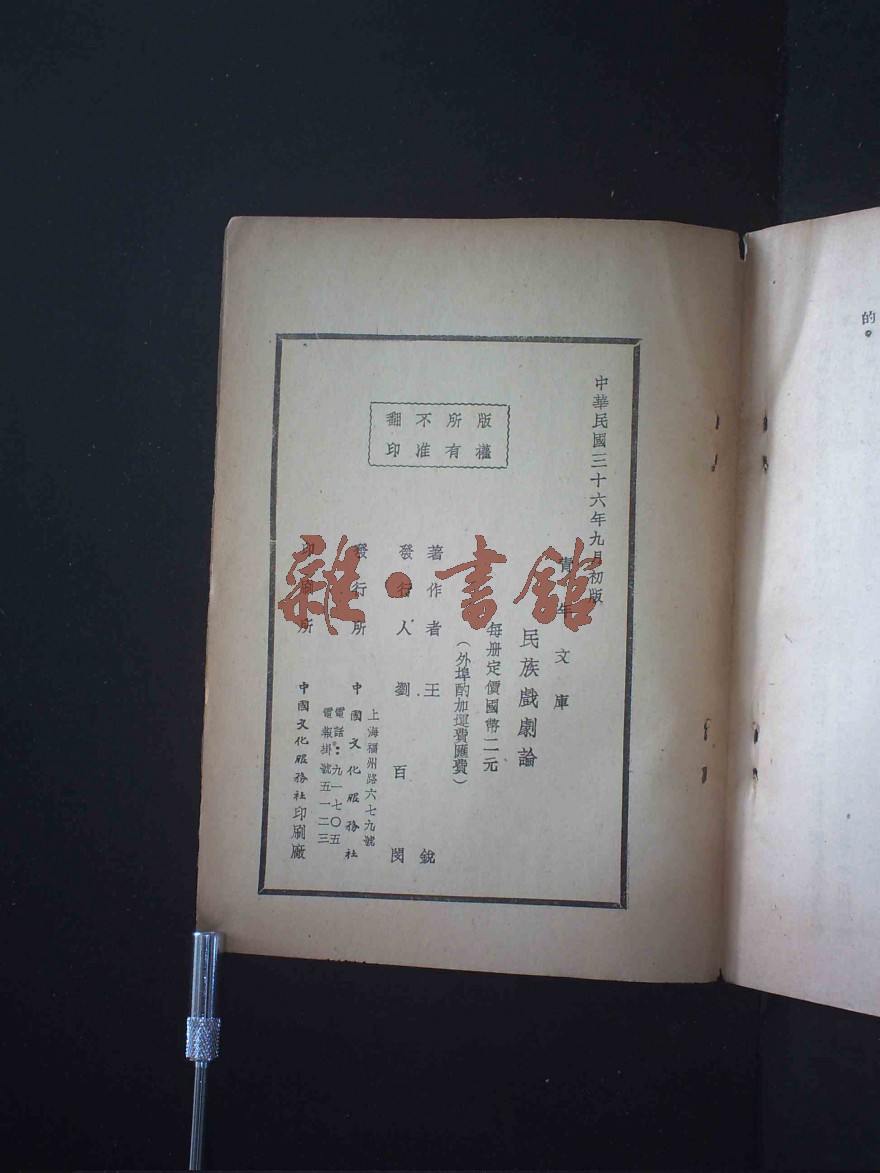 中華民國三十六年九月初版
青年文庫
民族戲劇論
每册定價國幣二元
（外埠酌加運費匯費）
版權所有
不准翻印
著作者 王銳
發行人 劉百閔
發行所 中國文化服務社
上海福州路六七九號
電話：九一七〇五
電報掛號五一二三
印刷所 中國文化服務社印刷廠
雜·書館
的。